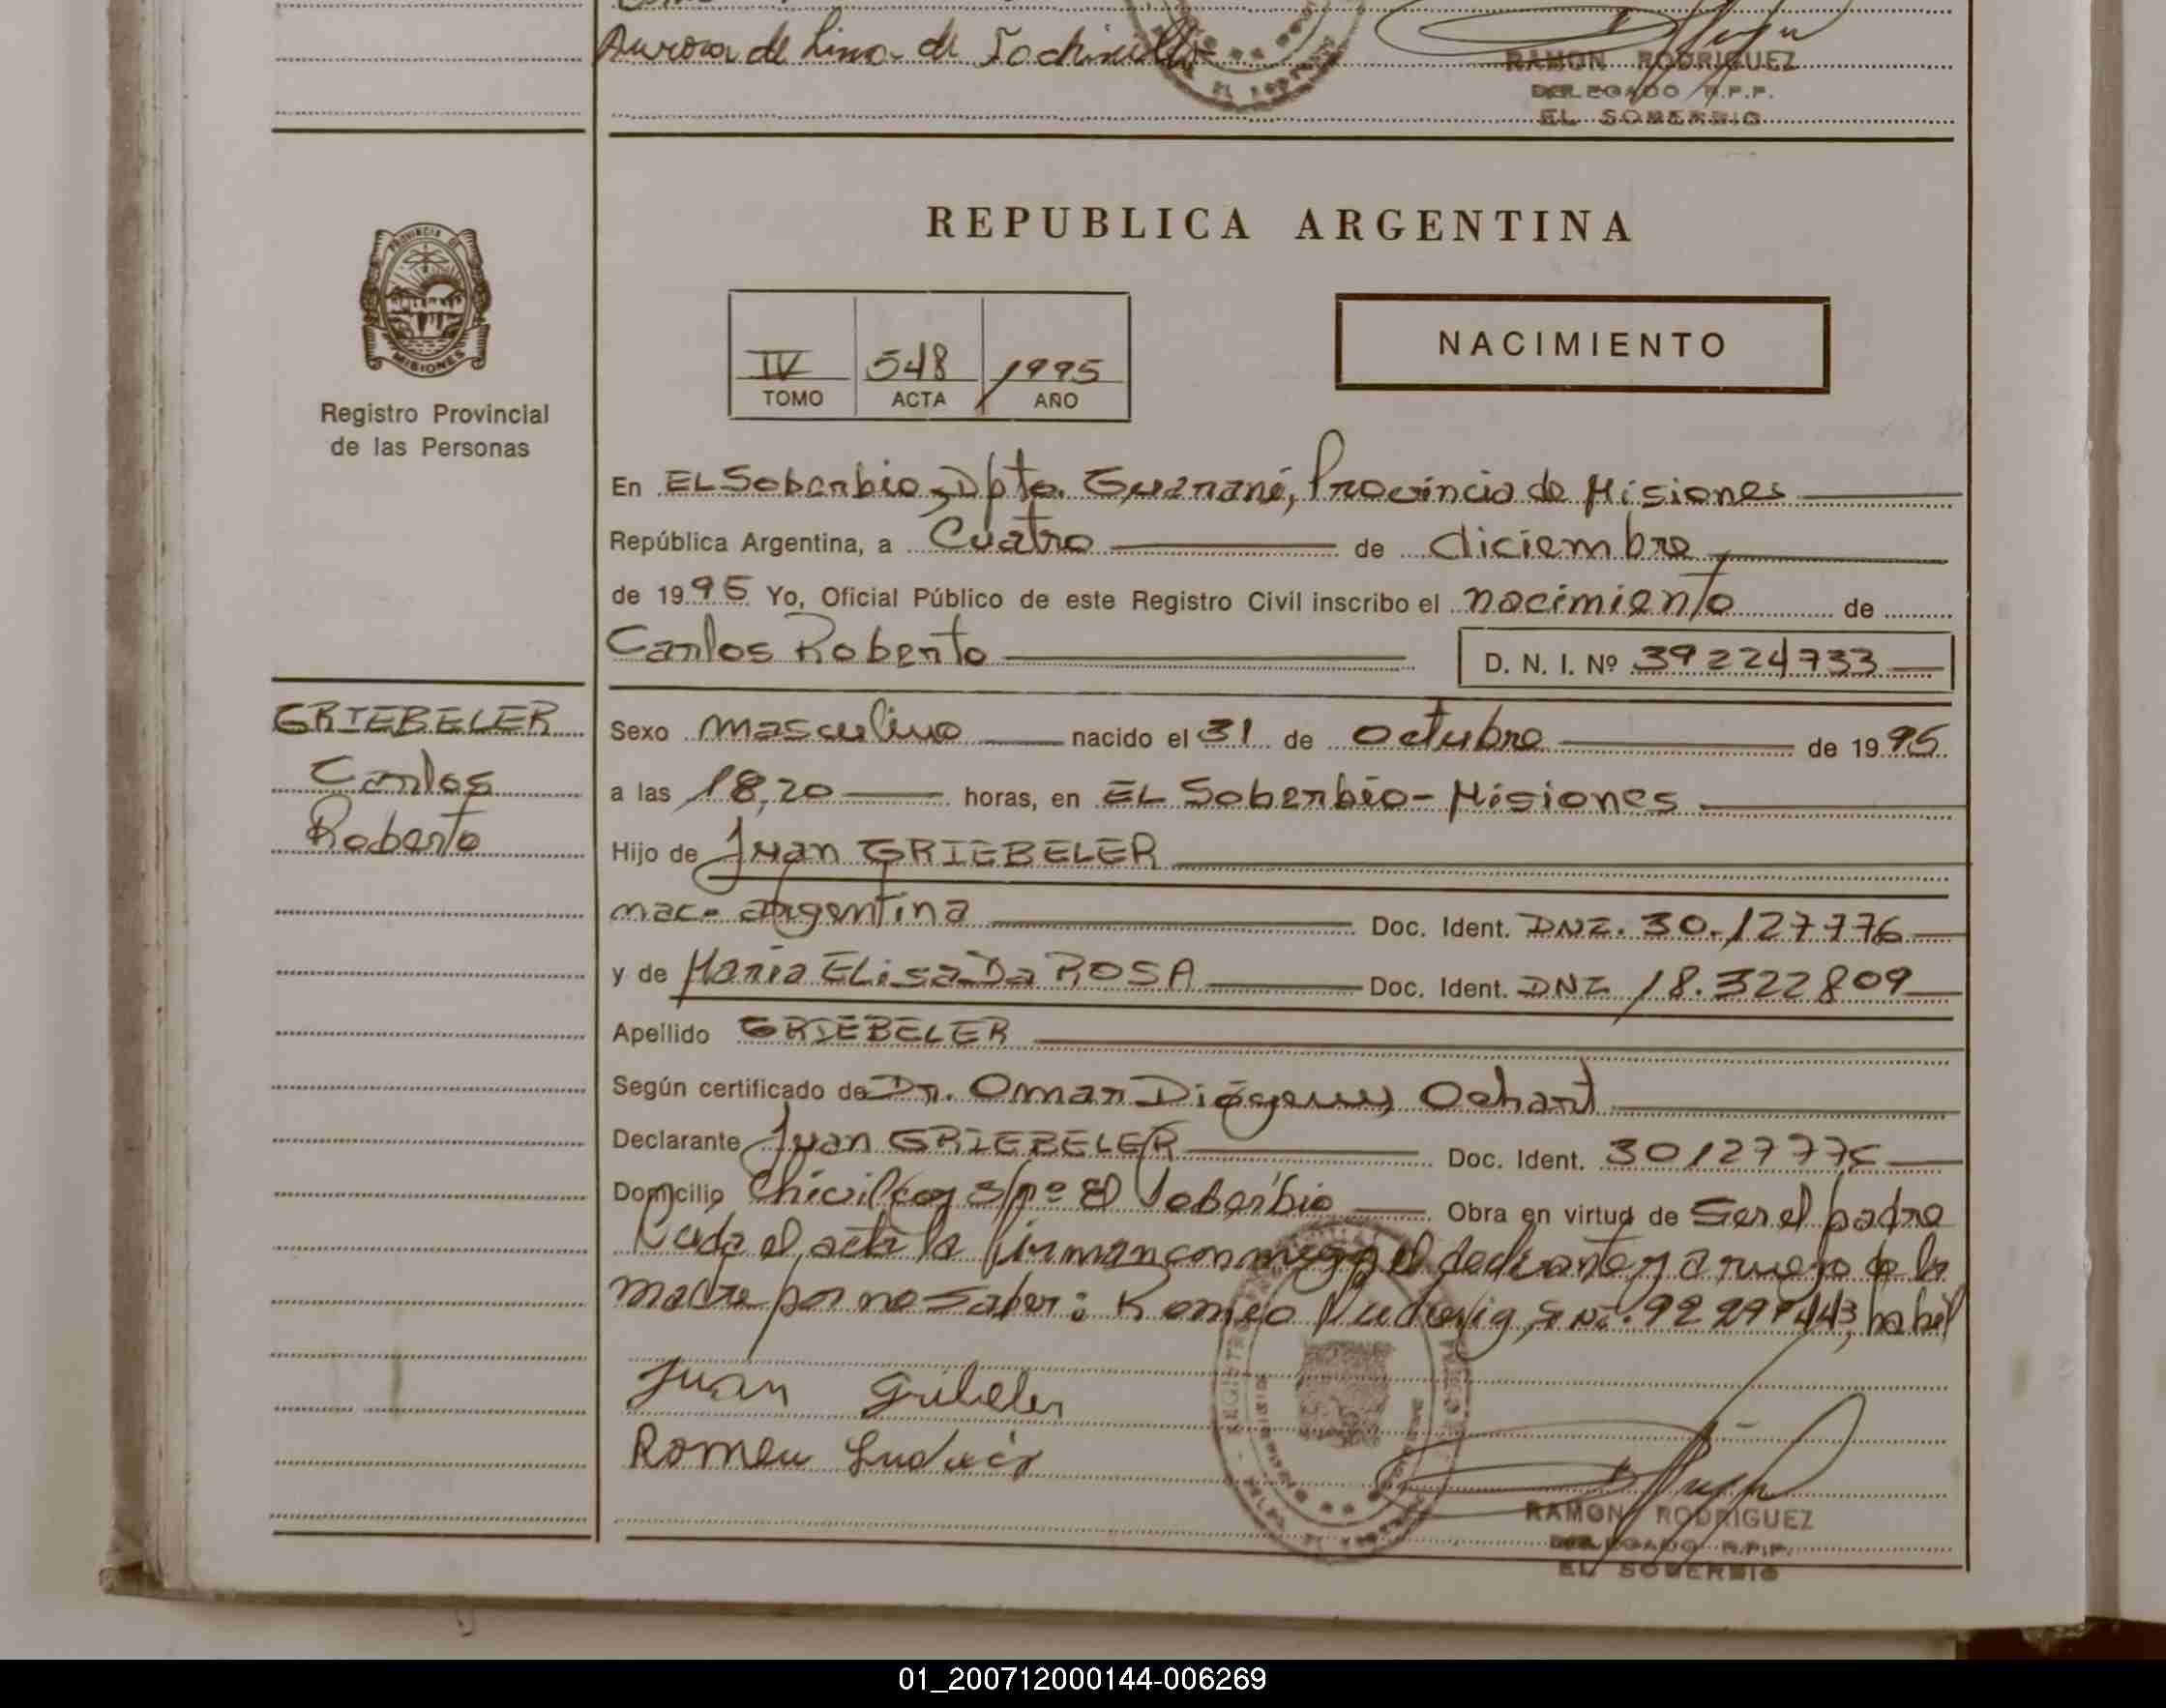 Aurora de Lima de
RAMON RODRIGUEZ
DELEGADO R.P.P.
EL SOBERBIO
REPUBLICA ARGENTINA
PROVINCIA DE
MISIONES
Registro Provincial
de las Personas
IV 548 1995
TOMO ACTA AÑO
NACIMIENTO
En EL Soberbio, Dpto. Guaraní, Provincia de Misiones
República Argentina, a Cuatro de diciembre
de 1995 Yo, Oficial Público de este Registro Civil inscribo el nacimiento de
Carlos Roberto D. N. I. Nº 39224733
GRIEBELER
Carlos
Roberto
Sexo masculino nacido el 31 de Octubre de 1995
a las 18,20 horas, en EL Soberbio - Misiones
Hijo de Juan GRIEBELER
nac. argentina Doc. Ident. DNI. 30.127776
y de María ELisa Da ROSA Doc. Ident. DNI 18.322809
Apellido GRIEBELER
Según certificado de Dr. Omar Diógenes Ochart
Declarante Juan GRIEBELER Doc. Ident. 30127776
Domicilio Chivilcoy s/nº El Soberbio Obra en virtud de Ser el padre
Leida el acta la firman conmigo el declarante y a ruego de la
madre por no saber: Romeo Ludwig, DNI. 92 297443, habil
Juan Gribeler
Romeu
RAMON RODRIGUEZ
DELEGADO R.P.P.
EL SOBERBIO
01_200712000144-006269